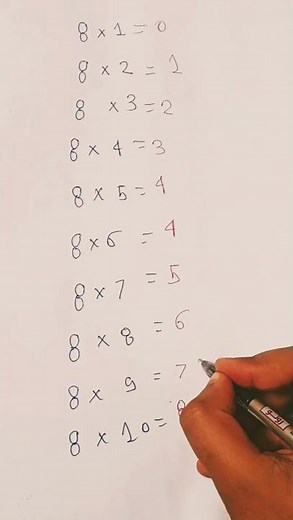 8 × 1 = 0
8 × 2 = 1
8 × 3 = 2
8 × 4 = 3
8 × 5 = 4
8 × 6 = 4
8 × 7 = 5
8 × 8 = 6
8 × 9 = 7
8 × 10 = 8